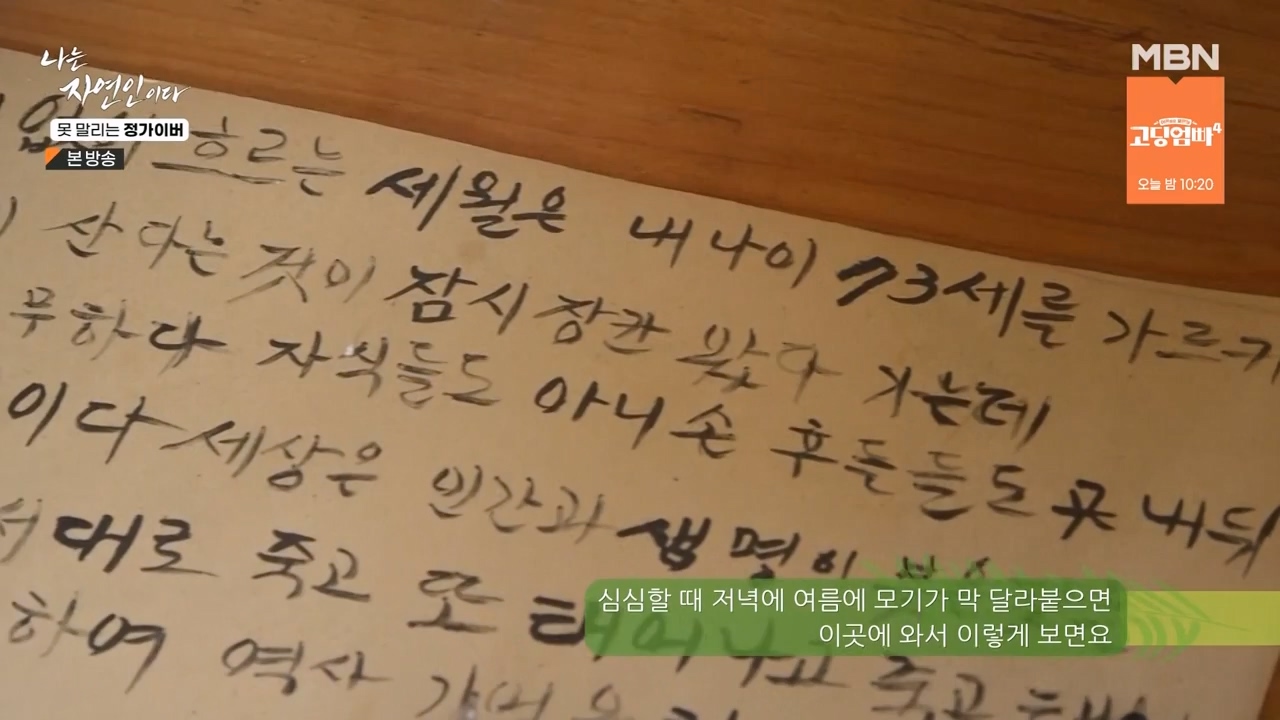 나는
자연인이다
못 말리는 정가이버
본 방송
MBN
고딩엄빠4
오늘 밤 10:20
흐르는 세월은 내 나이 73세를 가르
산다는 것이 잠시 잠깐 왔다 가는데
무하다 자식들도 아니 손 후든들도 곳 내 뒤
이다 세상은 인간과 생명이
대로 죽고 또 태어나고 죽고
하여 역사
심심할 때 저녁에 여름에 모기가 막 달라붙으면
이곳에 와서 이렇게 보면요